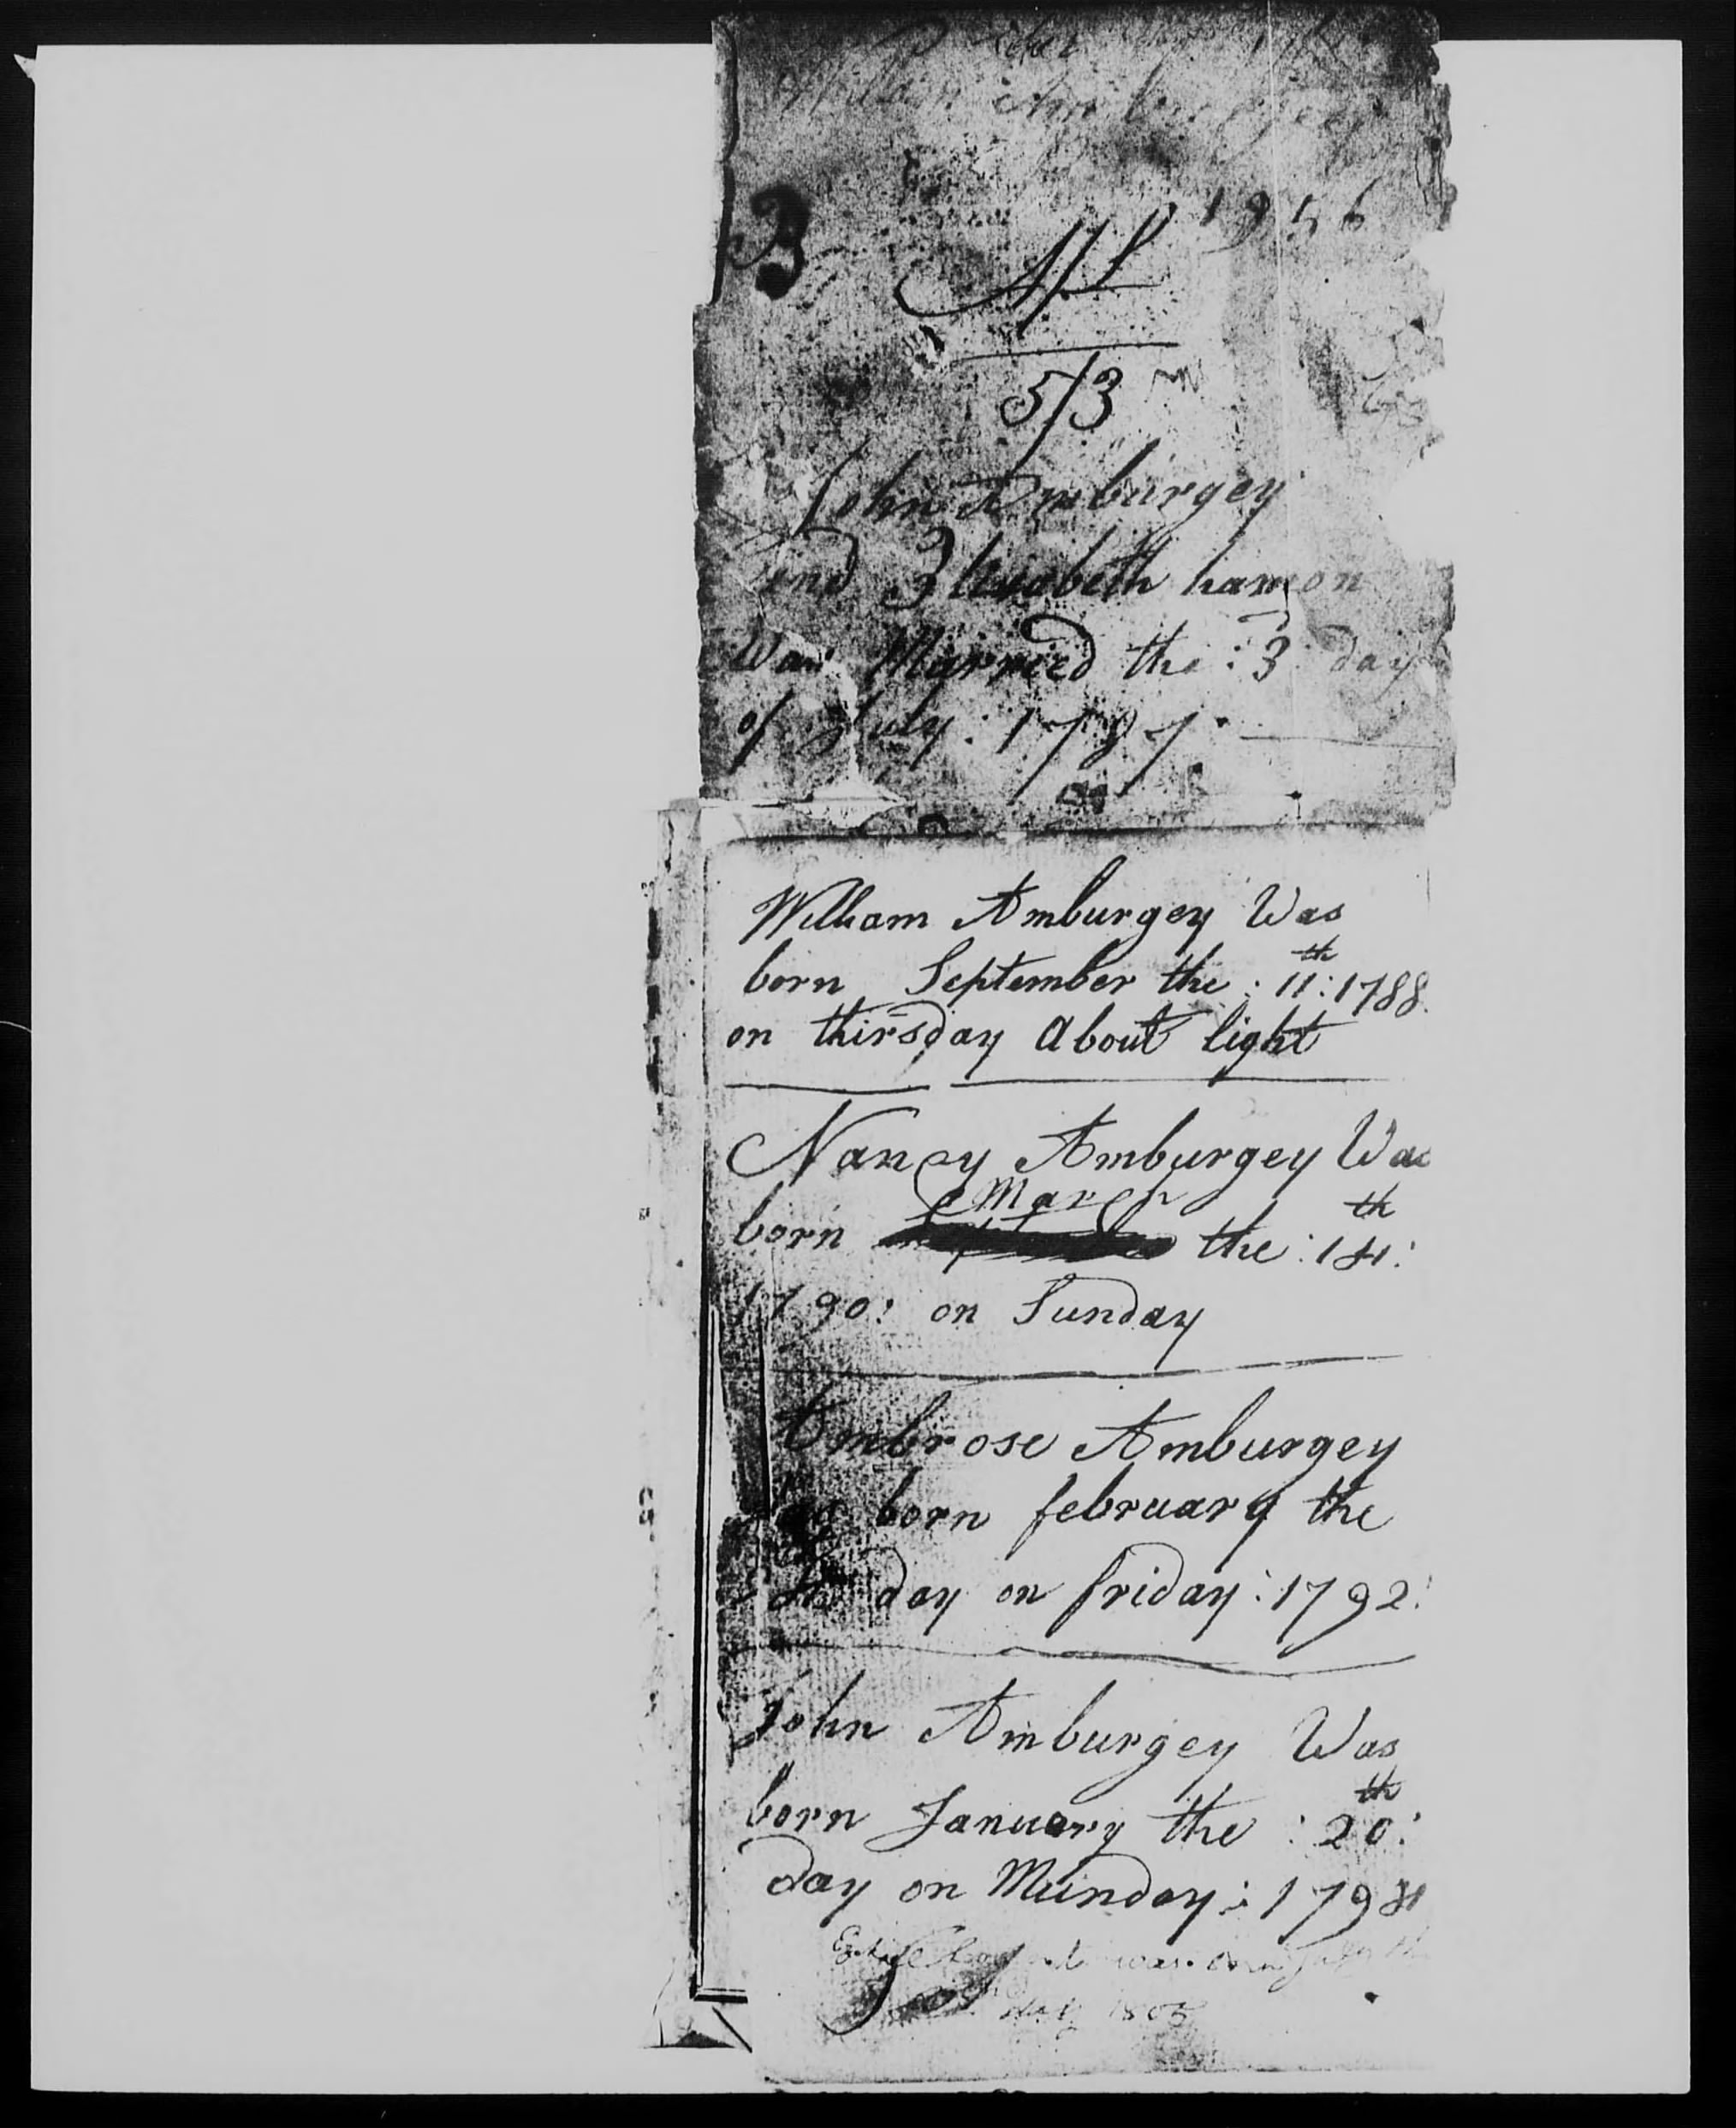 William Amburgey
1956
3
5/3
John Amburgey
and Elizabeth hamon
Was Married the : 3 day
of July : 1787
William Amburgey Was
born September the : 11th : 1788
on thirsday About light
Nancy Amburgey Was
March
born the : 14th :
1790 : on Sunday
Ambrose Amburgey
Was born february the
day on friday : 1792 :
John Amburgey Was
born January the : 20th :
day on Munday : 1794
was
day 1805